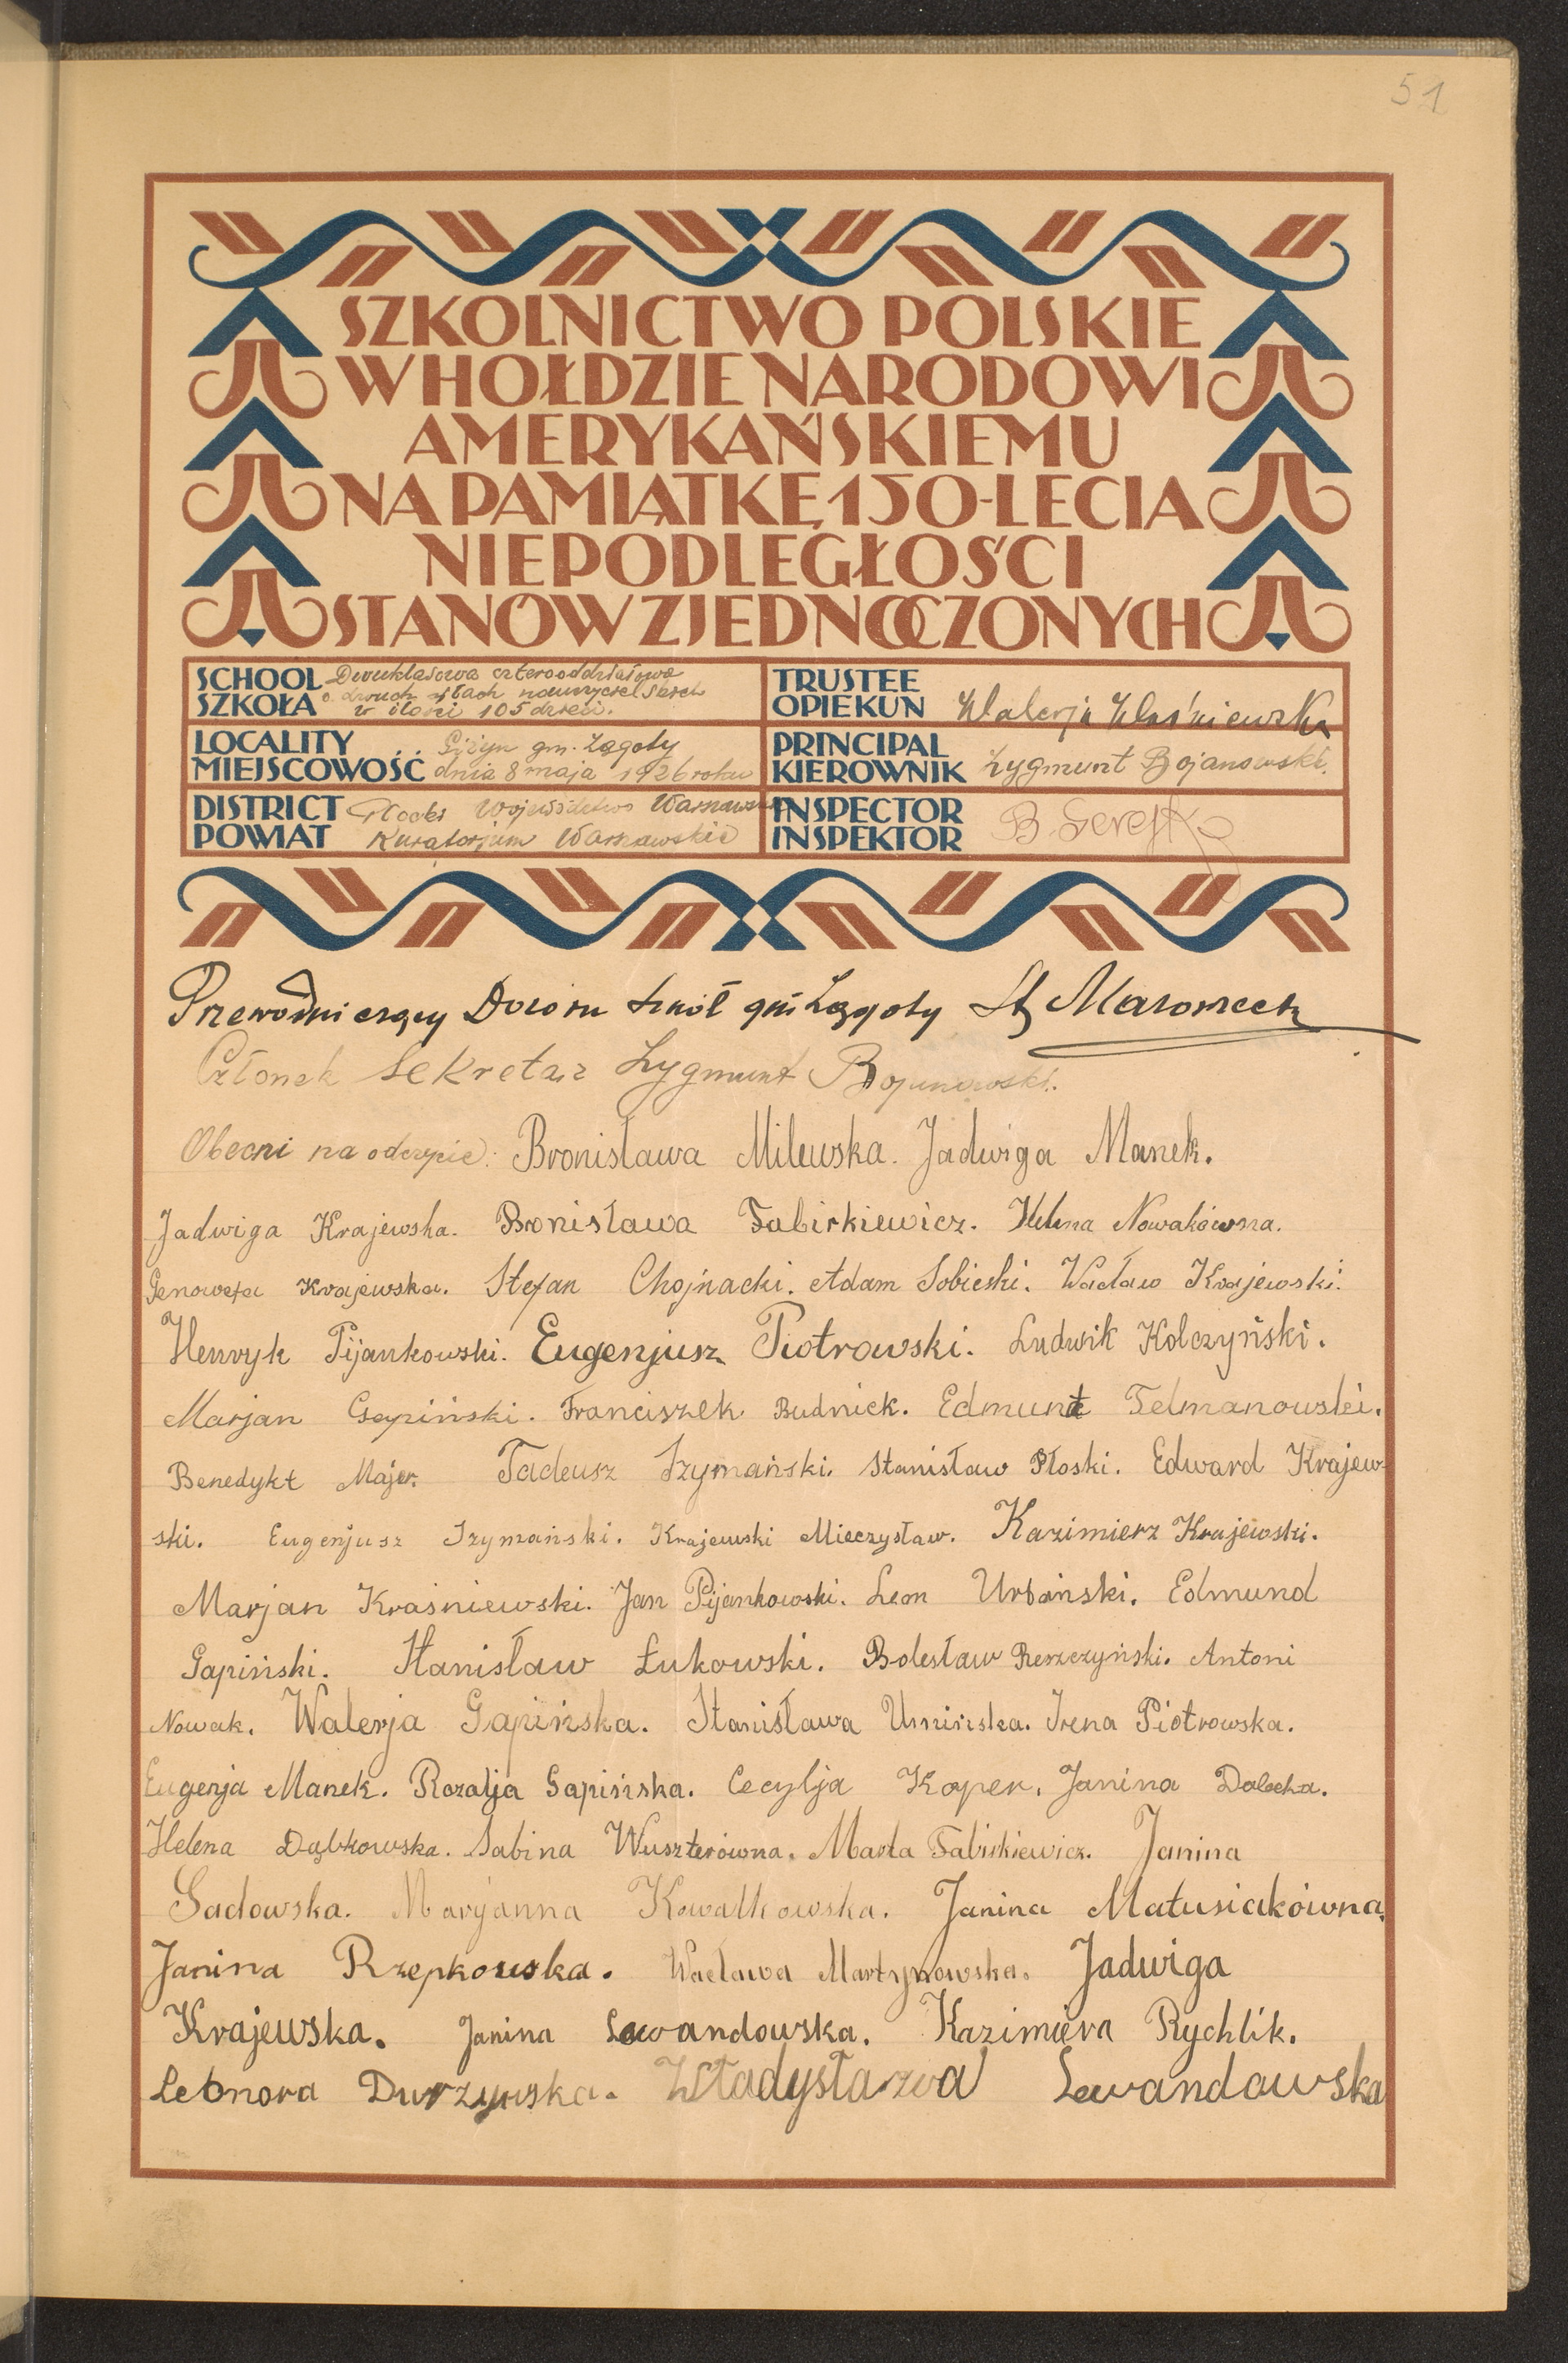 51
SZKOLNICTWO POLSKIE
W HOŁDZIE NARODOWI
AMERYKAŃSKIEMU
NA PAMIĄTKĘ 150-LECIA
NIEPODLEGŁOŚCI
STANÓW ZJEDNOCZONYCH
SCHOOL Dwuklasowa czterooddziałowa
SZKOŁA o dwuch siłach nauczycielskich
w ilości 105 dzieci.
TRUSTEE
OPIEKUN Walerja Waśniewska
LOCALITY Giżyn gm. Zągoty
MIEJSCOWOŚĆ dnia 8 maja 1926 roku
PRINCIPAL
KIEROWNIK Zygmunt Bojanowski.
DISTRICT Płocki Województwo Warszawskie
POWIAT Kuratorjum Warszawskie
INSPECTOR
INSPEKTOR B.
Przewodniczący Dozoru Szkół gm. Zągoty St.
Członek Sekretarz Zygmunt Bojanowski.
Obecni na odczycie: Bronisława Milewska. Jadwiga Manek.
Jadwiga Krajewska. Bronisława Fabirkiewicz. Helena Nowakówna.
Genowefa Krajewska. Stefan Chojnacki. Adam Sobieski. Wacław Krajewski.
Henryk Pijankowski. Eugenjusz Piotrowski. Ludwik Kolczyński.
Marjan Gapiński. Franciszek Budnick. Edmund Felmanowski.
Benedykt Majer. Tadeusz Szymański. Stanisław Płoski. Edward Krajew-
ski. Eugenjusz Szymański. Krajewski Mieczysław. Kazimierz Krajewski.
Marjan Kraśniewski. Jan Pijankowski. Leon Urbański. Edmund
Gapiński. Stanisław Łukowski. Bolesław Antoni
Nowak. Walerja Gapińska. Stanisława Umińska. Irena Piotrowska.
Eugenja Manek. Rozalja Gapińska. Cecylja Koper. Janina Dalecka.
Helena Dąbkowska. Sabina Wuszterówna. Marta Fabirkiewicz. Janina
Sadowska. Maryjanna Kowalkowska. Janina Matusiakówna.
Janina Rzepkowska. Wacława Martynowska. Jadwiga
Krajewska. Janina Lewandowska. Kazimiera Rychlik.
Leonora Durzyńska. Władysława Lewandowska